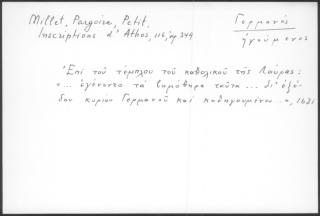 Millet, Pargoire, Petit,
Inscriptions d'Athos, 116, ἀρ. 349
Γερμανός
ἡγούμενος
Ἐπὶ τοῦ τέμπλου τοῦ καθολικοῦ τῆς Λαύρας:
«... ἐγένοντο τὰ βημόθηρα ταῦτα ... δι' ἐξό-
δου κυρίου Γερμανοῦ καὶ καθηγουμένου...», 1621